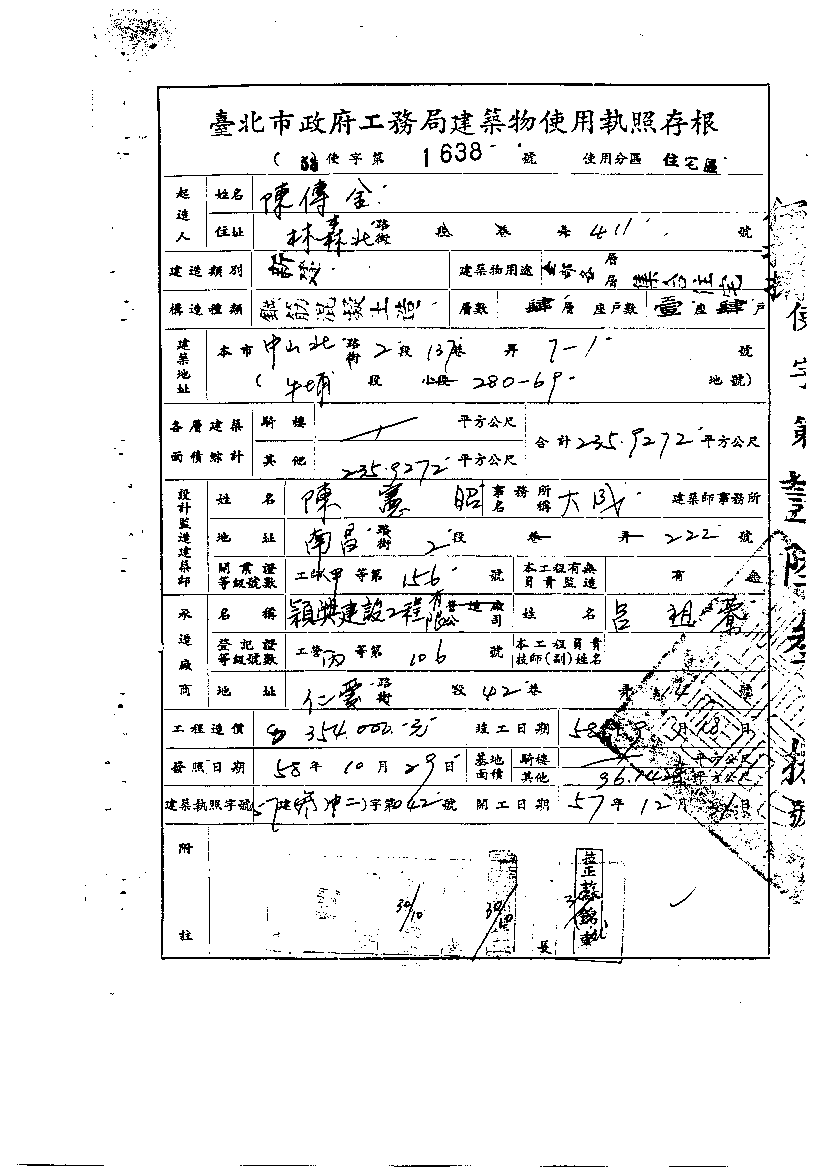 臺北市政府工務局建築物使用執照存根
(58使字第 1638 號 使用分區 住宅區
起造人 姓名 陳傳金
住址 林森北路街 段 巷 弄 411 號
建造類別 新建 建築物用途 層層 集合住宅
構造種類 鋼筋混凝土造 層數 肆層 座戶數 壹座肆戶
建築地址 本市中山北路街2段137巷 弄 7-1 號
(牛埔 段 小段 280-69 地號)
各層建築面積綜計 騎樓 平方公尺 合計235.9272平方公尺
其他 235.9272平方公尺
設計監造建築師 姓名 陳憲昭 事務所名稱 大 建築師事務所
地址 南昌路街2段 巷 弄 222 號
開業證等級號數 工師甲等第 156 號 本工程有無負責監造 有
承造廠商 名稱 穎興建設工程有限營造廠公司 姓名 呂祖
登記證等級號數 工營丙等第 106 號 本工程負責技師(副)姓名
地址 仁愛路街 段 42巷 弄 14 號
工程造價 354.000.元 竣工日期 58年 月18月
發照日期 58年10月29日 基地面積 騎樓 平方公尺
其他 平方公尺
建築執照字號 57建 (中二)字第042號 開工日期 57年12月 日
附註
30/10 30/10
長
技正蘇錦
使字第壹陸叁捌號